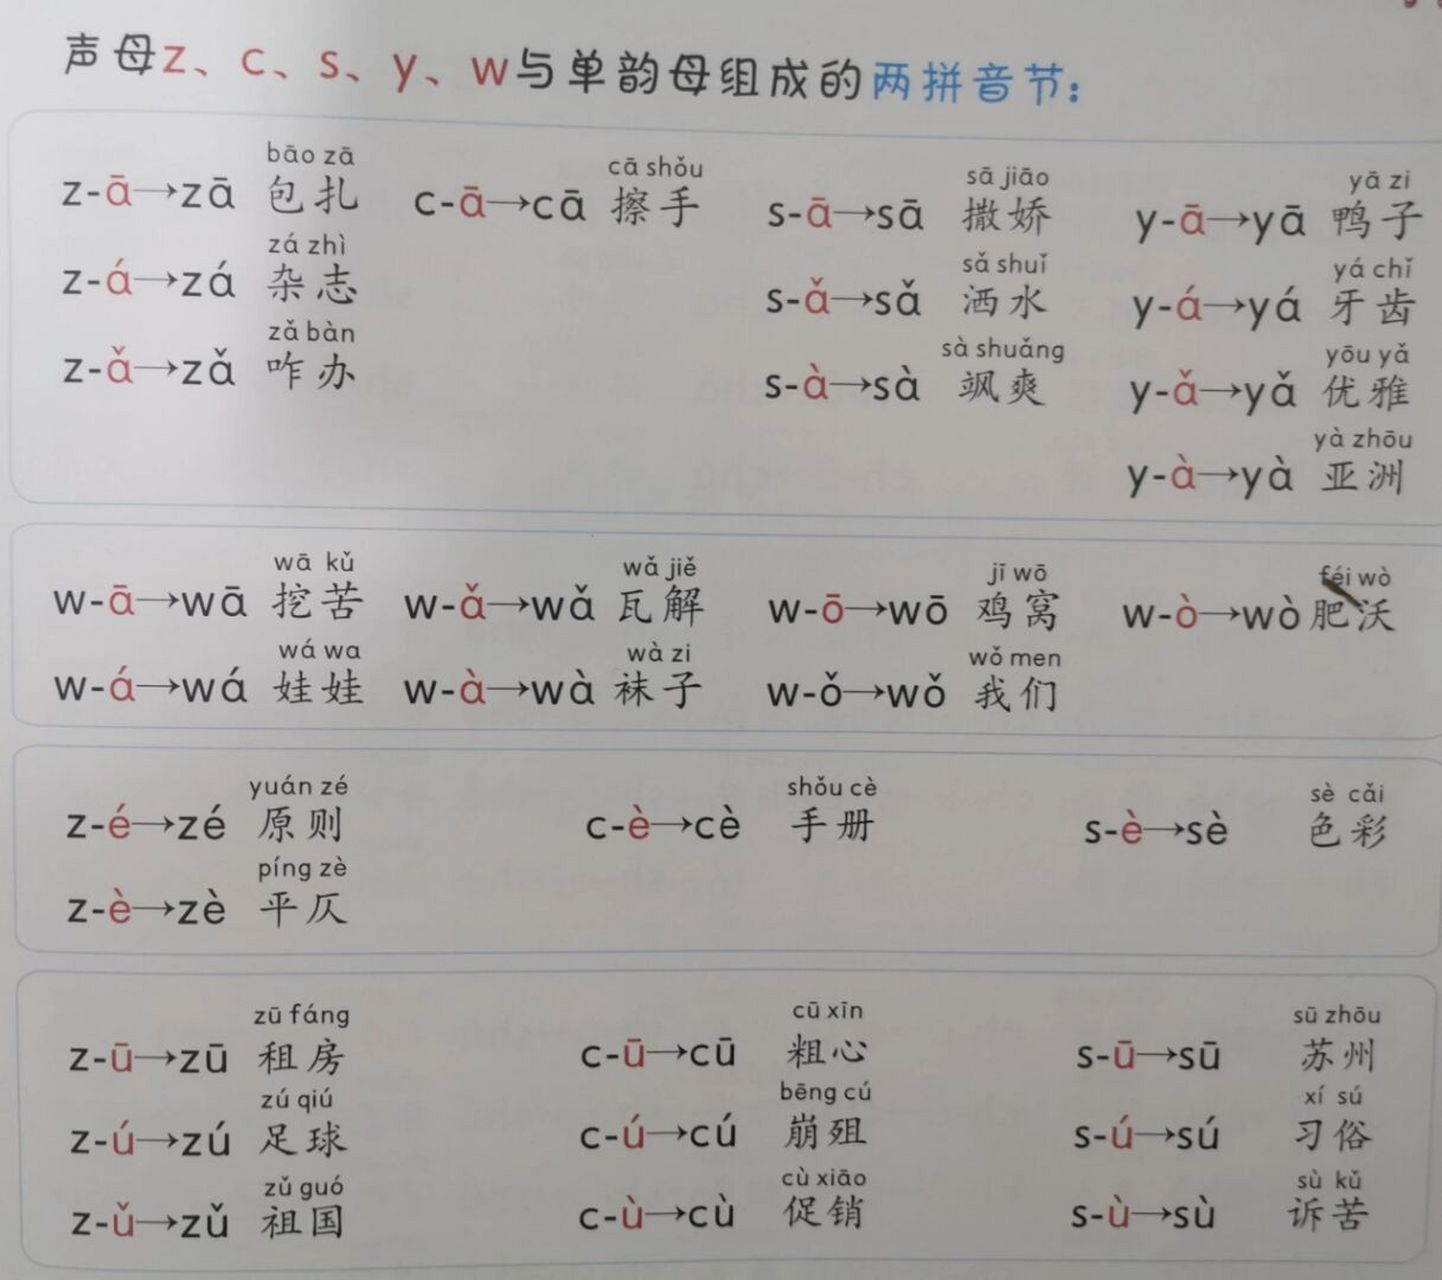 声母z、c、s、y、w与单韵母组成的两拼音节：
bāo zā cā shǒu sā jiāo yā zi
z-ā→zā 包扎 c-ā→cā 擦手 s-ā→sā 撒娇 y-ā→yā 鸭子
zá zhì sǎ shuǐ yá chǐ
z-á→zá 杂志 s-ǎ→sǎ 洒水 y-á→yá 牙齿
zǎ bàn sà shuǎng yōu yǎ
z-ǎ→zǎ 咋办 s-à→sà 飒爽 y-ǎ→yǎ 优雅
yà zhōu
y-à→yà 亚洲
wā kǔ wǎ jiě jī wō féi wò
w-ā→wā 挖苦 w-ǎ→wǎ 瓦解 w-ō→wō 鸡窝 w-ò→wò 肥沃
wá wa wà zi wǒ men
w-á→wá 娃娃 w-à→wà 袜子 w-ǒ→wǒ 我们
yuán zé shǒu cè sè cǎi
z-é→zé 原则 c-è→cè 手册 s-è→sè 色彩
píng zè
z-è→zè 平仄
zū fáng cū xīn sū zhōu
z-ū→zū 租房 c-ū→cū 粗心 s-ū→sū 苏州
zú qiú bēng cú xí sú
z-ú→zú 足球 c-ú→cú 崩殂 s-ú→sú 习俗
zǔ guó cù xiāo sù kǔ
z-ǔ→zǔ 祖国 c-ù→cù 促销 s-ù→sù 诉苦